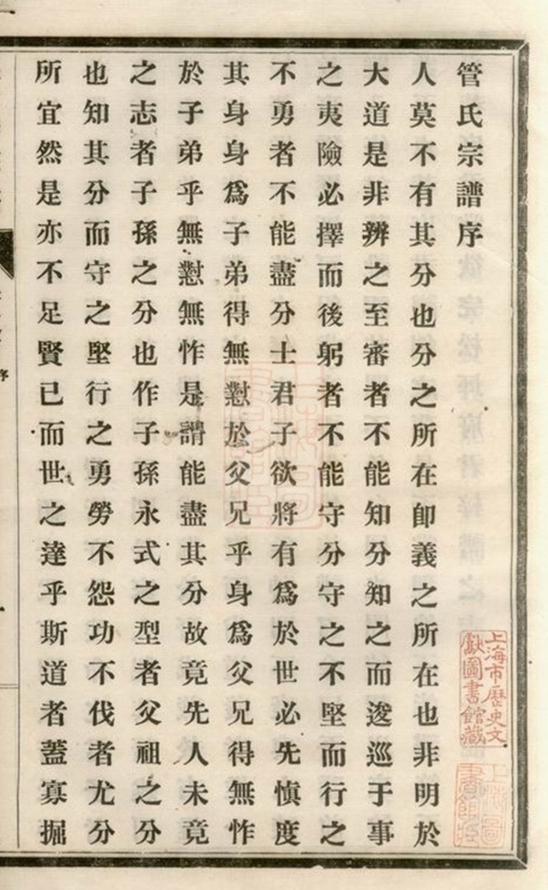 管氏宗譜序
人莫不有其分也分之所在卽義之所在也非明於
大道是非辨之至審者不能知分知之而逡巡于事
之夷險必擇而後躬者不能守分守之不堅而行之
不勇者不能盡分士君子欲將有爲於世必先愼度
其身身爲子弟得無懟於父兄乎身爲父兄得無怍
於子弟乎無懟無怍是謂能盡其分故竟先人未竟
之志者子孫之分也作子孫永式之型者父祖之分
也知其分而守之堅行之勇勞不怨功不伐者尤分
所宜然是亦不足賢已而世之達乎斯道者蓋寡掘
序
上海市歷史文
獻圖書館藏